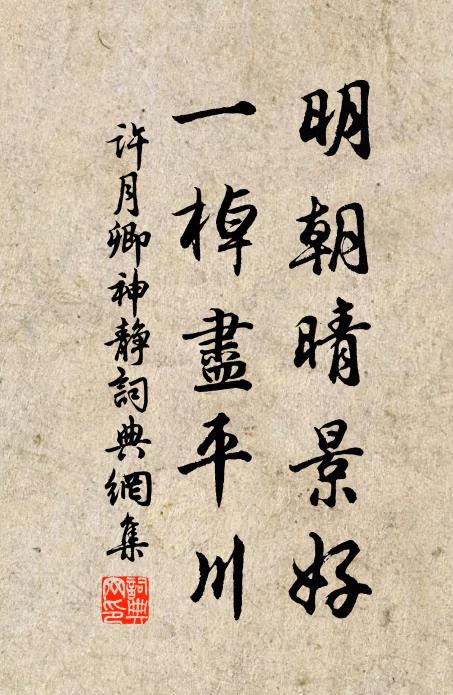 明朝晴景好
一棹盡平川
許月卿神靜詞典網集
詞典網印